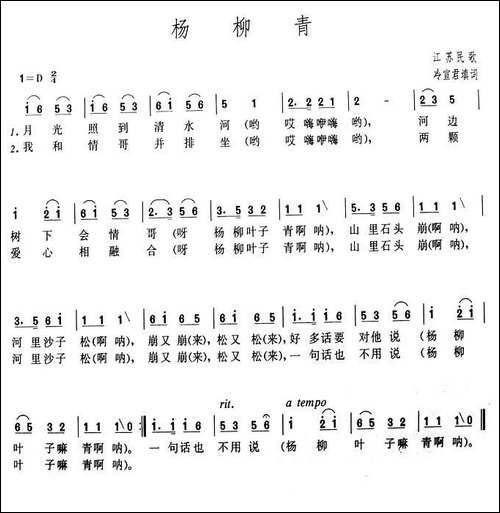 杨 柳 青
江 苏 民 歌
冷宣君填词
1=D 2/4
i 6 5 3 | i 6 5 3 | 6 i 6 5 | 5 1 | 2. 2 2 1 | 2 - | 2 3 5 |
1. 月 光 照 到 清 水 河 (哟 哎 嗨咿嗨 哟), 河 边
2. 我 和 情 哥 并 排 坐 (哟 哎 嗨咿嗨 哟), 两 颗
i 2 i | 6 i 5 3 | 2. 3 5 | 3. 5 3 2 | 1 1 1 | 5. 3 5 6 | i i i |
树 下 会 情 哥 (呀 杨 柳叶子 青啊呐), 山 里石头 崩(啊呐),
爱 心 相 融 合 (呀 杨 柳叶子 青啊呐), 山 里石头 崩(啊呐),
3. 5 6 i | 1 1 1 | i 6 i 6 | 5 6 5 6 | i. i i 6 | 5 3 5 6 | i 2 i |
河 里沙子 松(啊 呐), 崩又 崩(来), 松又 松(来), 好 多话要 对他 说 (杨 柳
河 里沙子 松(啊 呐), 崩又 崩(来), 松又 松(来), 一 句话也 不用 说 (杨 柳
rit. a tempo
6 5 3 2 | 1 1 1\0 :‖ i. i i 6 | 5 3 5 6 | i 2 i | 6 5 3 2 | 1 1 1\0 ‖
叶 子嘛 青啊 呐)。 一 句话也 不用 说 (杨 柳 叶 子嘛 青啊 呐)。
叶 子嘛 青啊 呐)。